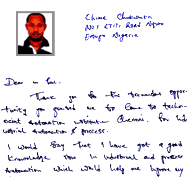 Chime Chukwuka
No 1
Enugu Nigeria
Dear in
Thank you for the tremendous oppor-
tunity you granted me to come to techn-
ical automation Chennai, for Ind
ustrial automation & process.
I would say that I have got a good
knowledge now in Industrial and process
automation which would help me